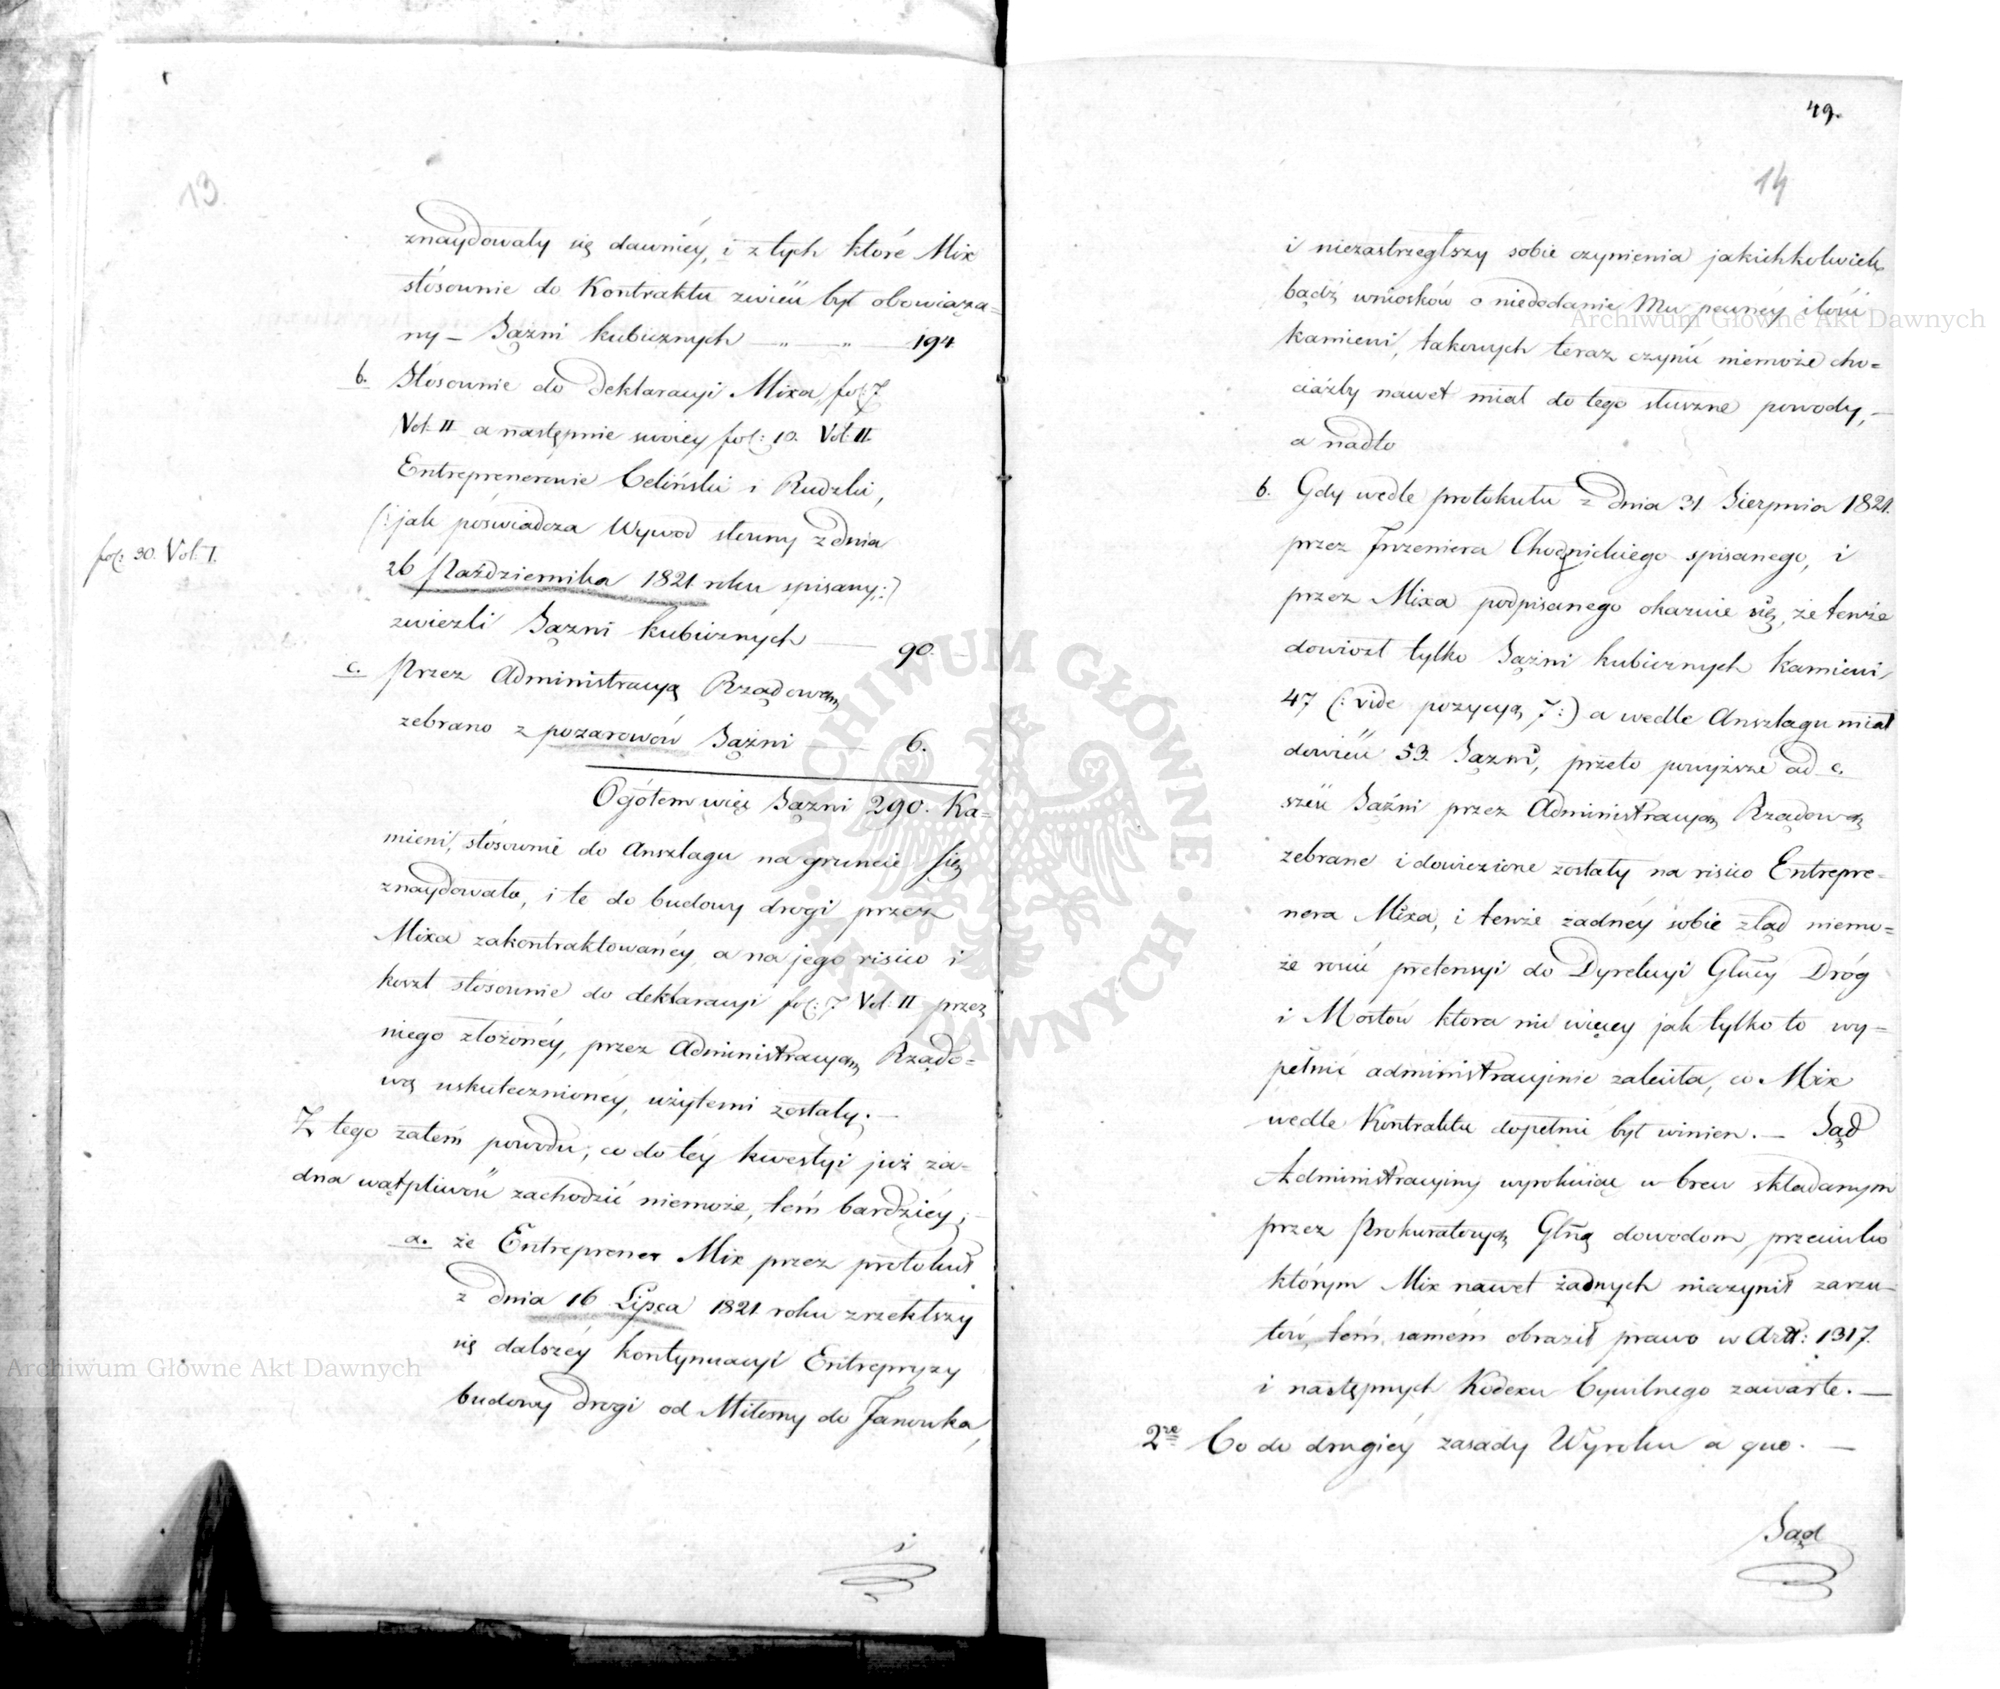 13.
znaydowały się dawniéy, i z tych któré Mix
stósownie do Kontraktu zwieść był obowiąza=
ny – Sążni kubicznych — „ — „ — 194
b. Stósownie do deklaracyi Mixa fol: 7
Vol: II a następnie swoiéy fol: 10. Vol: II.
Entreprenerowie Celiński i Rudzki,
(: jak poświadcza Wywod słowny z dnia
fol: 30. Vol: I.
26 Października 1821 roku spisany :)
zwieźli Sążni kubicznych — 90.
c. Przez Administracyą Rządową
zebrano z pozarowów Sążni — 6.
Ogółem więc Sążni 290. Ka=
mieni, stósownie do Anszlagu na gruncie się
znaydowało, i te do budowy drogi przez
Mixa zakontraktowanéy, a na jego risico i
koszt stósownie do deklaracyi fol: 7. Vol: II przez
niego złożonéy, przez Administracyą Rządo=
wą uskutecznionéy, użytemi zostały. —
Z tego zatém powodu, co do téy kwestyi już ża=
dna wątpliwość zachodzić niemoże, tém bardziéy; —
a. że Entreprener Mix przez protokuł
z dnia 16 Lipca 1821 roku zrzekłszy
się dalszéy kontynuacyi Entrepryzy
budowy drogi od Miłosny do Janowka,
i
49.
14
i niezastrzegłszy sobie czynienia jakichkolwiek
bądź wniosków o niedodanie Mu pewnéy ilości
kamieni, takowych teraz czynić niemoże cho=
ciażby nawet miał do tego słuszne powody, —
a nadto
b. Gdy wedle protokułu z dnia 31 Sierpnia 1821.
przez Inżeniera Chodnickiego spisanego, i
przez Mixa podpisanego okazuie się, że tenże
dowiozł tylko Sążni kubicznych kamieni
47 (: vide pozycyą 7 :) a wedle Anszlagu miał
dowieść 53. Sążni, przeto powyższe ad c.
sześć Sążni przez Administracyą Rządową
zebrane i dowiezione zostały na risico Entrepre=
nera Mixa, i tenże żadnéy sobie ztąd niemo=
że rościć pretensyi do Dyrekcyi Głnéy Dróg
i Mostów ktora nic więcéy jak tylko to wy=
pełnić administracyinie zaleciła, co Mix
wedle Kontraktu dopełnić był winien. — Sąd
Administracyiny wyrokuiąc w brew składanym
przez Prokuratoryą Głną dowodom, przeciwko
którym Mix nawet żadnych nieczynił zarzu=
tów, tém samém obraził prawo w Artt: 1317.
i następnych Kodexu Cywilnego zawarte. —
2re Co do drugiéy zasady Wyroku a quo. —
Sąd
Archiwum Główne Akt Dawnych
Archiwum Główne Akt Dawnych
ARCHIWUM GŁÓWNE AKT DAWNYCH